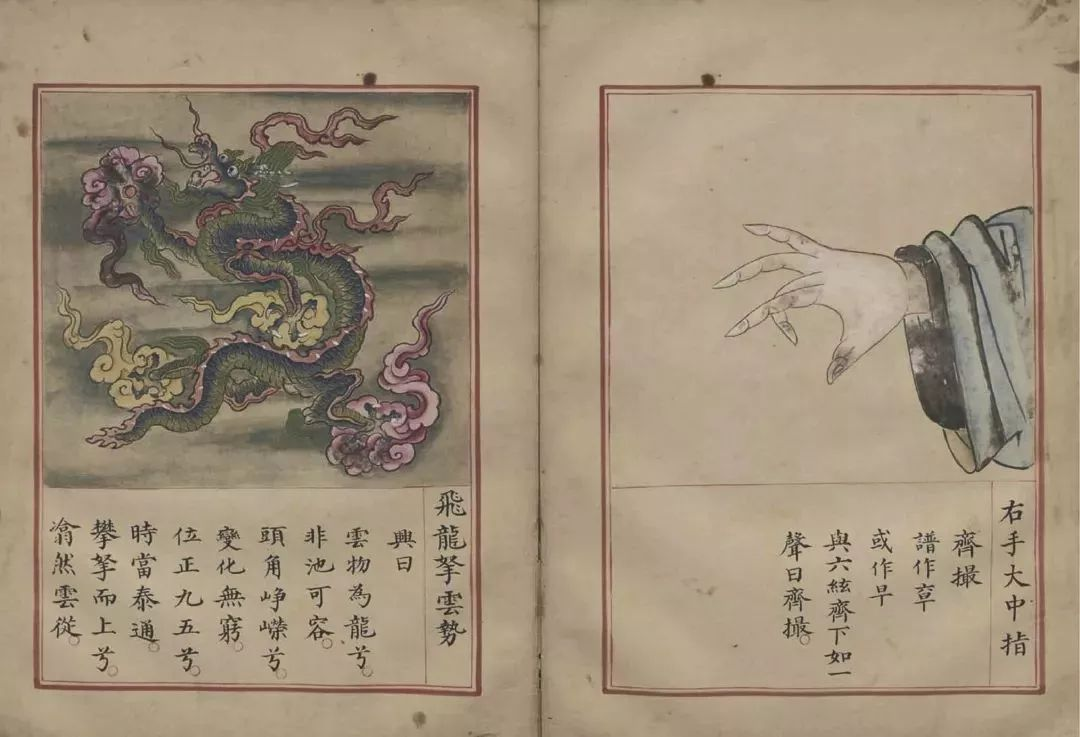 右手大中指
齊撮
譜作
或作早
與六絃齊下如一
聲曰齊撮。
飛龍拏雲勢
興曰
雲物為龍兮。
非池可容。
頭角崢嶸兮。
變化無窮。
位正九五兮。
時當泰通。
攀拏而上兮。
滃然雲從。